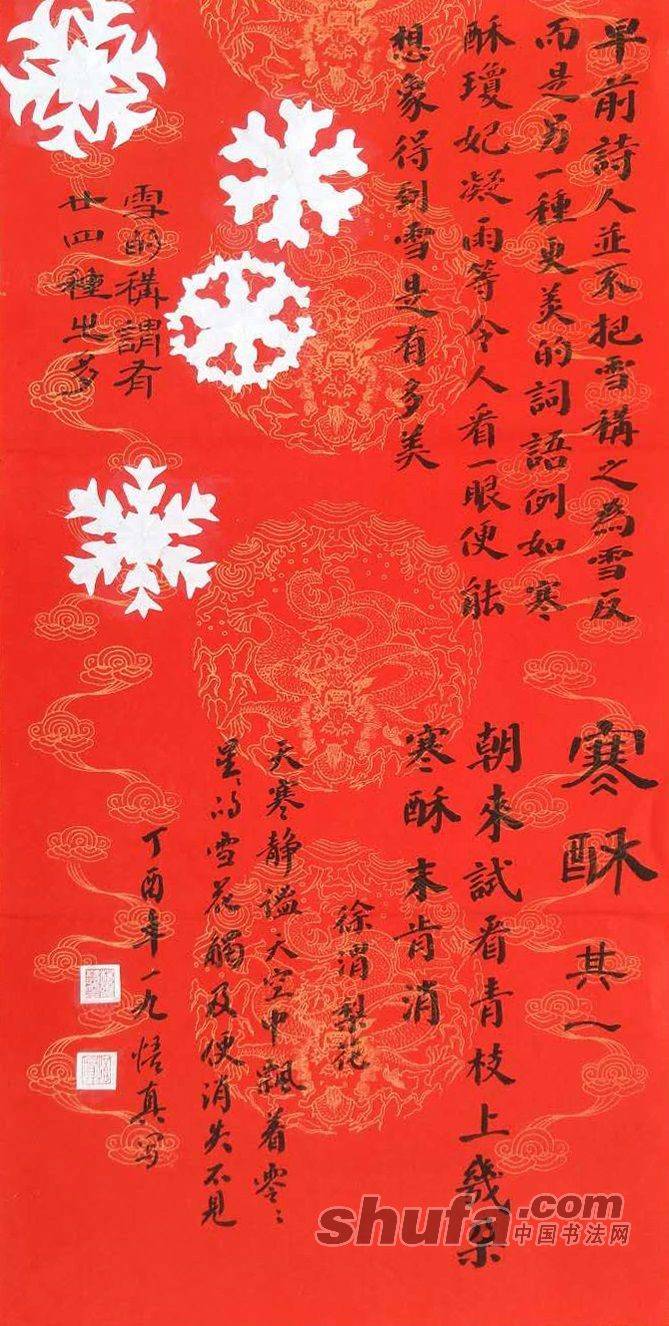 早前詩人並不把雪稱之為雪反
而是另一種更美的詞語例如寒
酥瓊妃凝雨等令人看一眼便能
想象得到雪是有多美
雪的稱謂有
廿四種之多
寒酥 其一
朝來試看青枝上幾朵
寒酥未肯消
徐渭 梨花
天寒静谧天空中飄着零々
星々的雪花觸及便消失不見
丁酉年一九悟真写
shufa.com
中国书法网